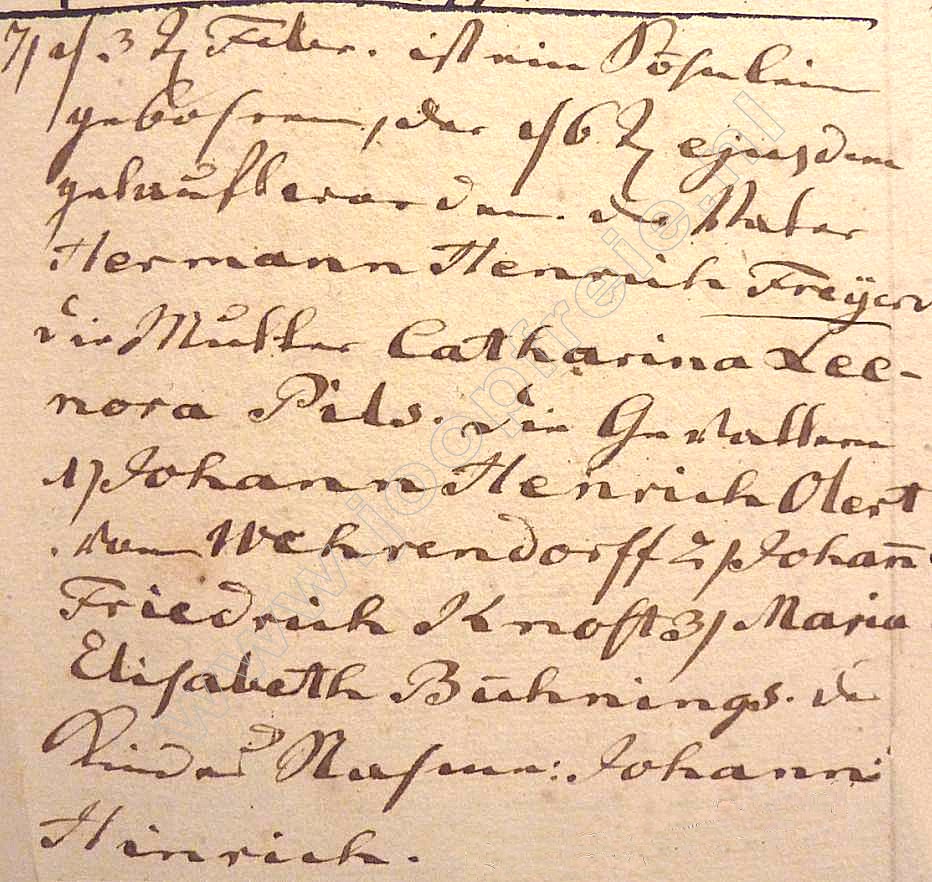 7) d. 3 t. Febr. ist ein Söhnlein
gebohren, der d. 6 t. ejusdem
getauft worden. der Vater
Hermann Henrich Freyer
die Mutter Catharina Lee-
nora Pils. die Gevattern
1) Johann Henrich Olert
von Wehrendorff 2) Johan̄
Friedrich Knoft 3) Maria
Elisabeth Bühnings. des
Kindes Nahme: Johann
Hinrich.
www.joopfreie.nl